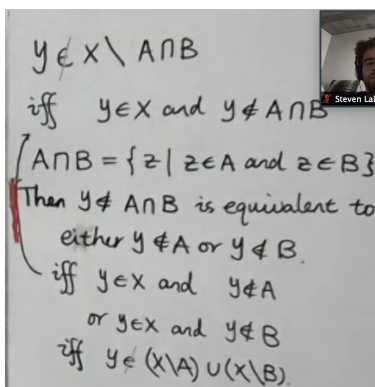 y ∉ X \ A∩B
iff y∈X and y∉A∩B
A∩B = {z | z∈A and z∈B}
Then y∉A∩B is equivalent to
either y∉A or y∉B.
iff y∈X and y∉A
or y∈X and y∉B
iff y∈(X\A)∪(X\B).
Steven Lal